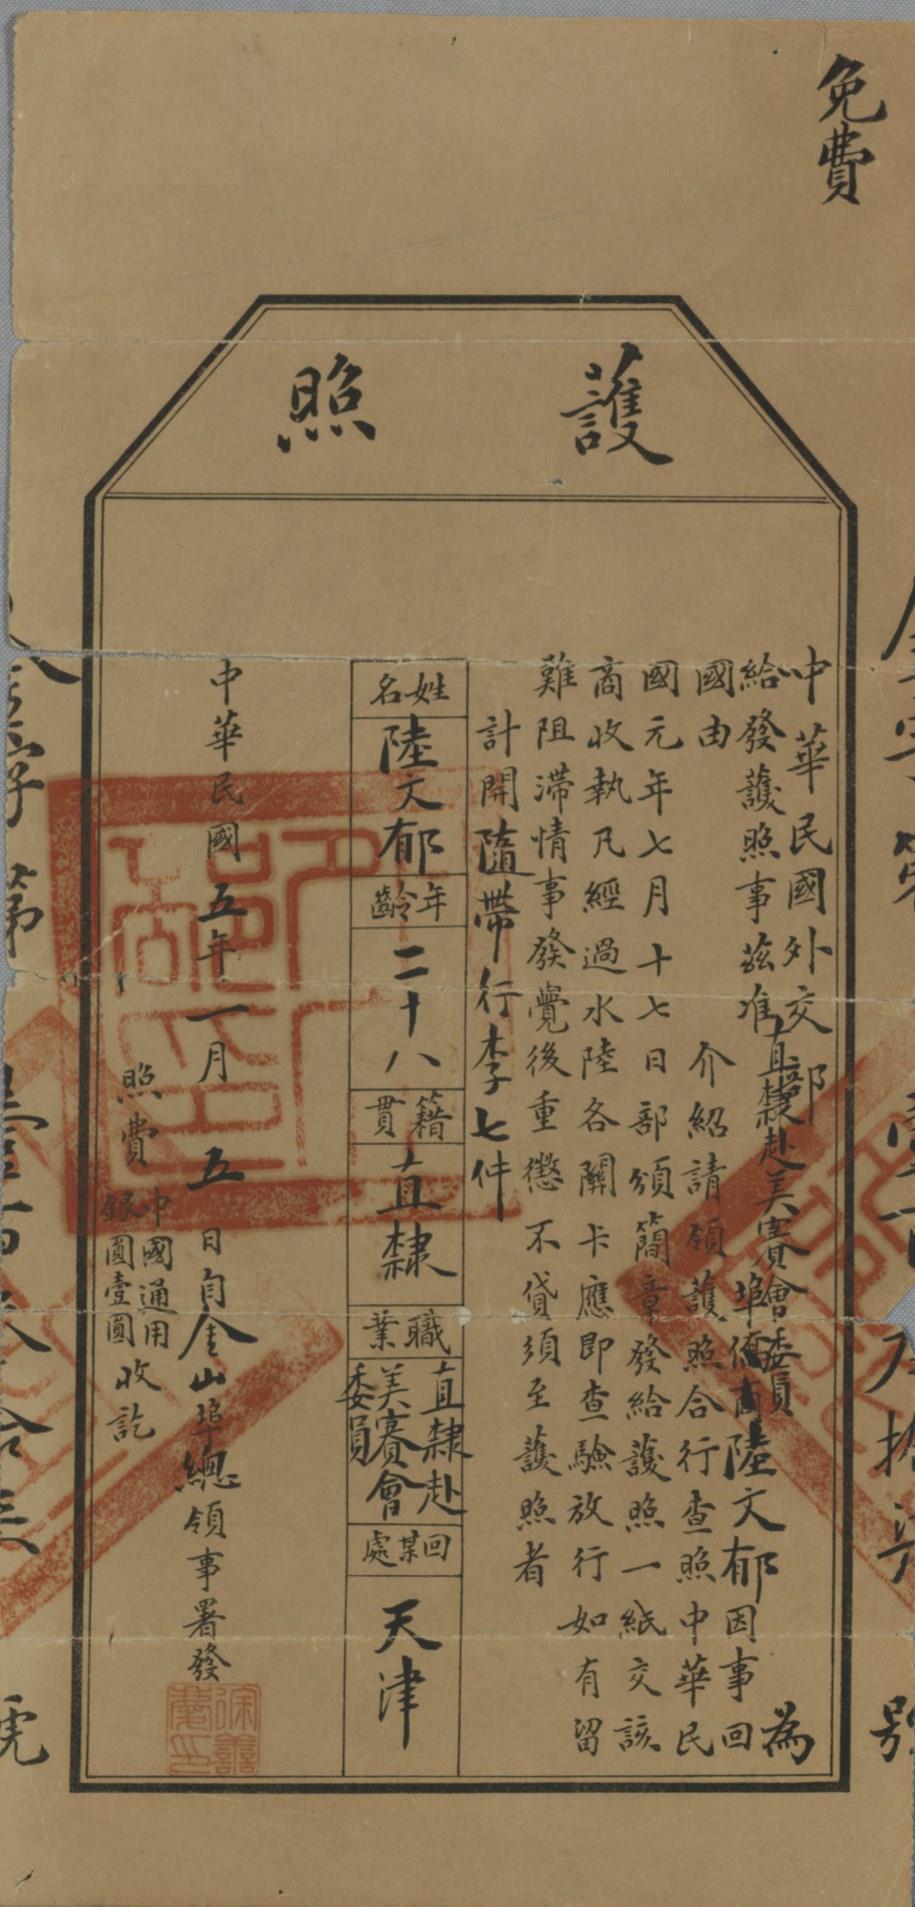 免費
護照
中華民國外交部 為
給發護照事茲准直隸赴美賽會委員
埠僑商陸文郁因事回
國由 介紹請領護照合行查照中華民
國元年七月十七日部頒簡章發給護照一紙交該
商收執凡經過水陸各關卡應即查驗放行如有留
難阻滯情事發覺後重懲不貸須至護照者
計開隨帶行李七件
姓名
陸文郁
年齡
二十八
籍貫
直隸
職業
直隸赴
美賽會
委員
回某處
天津
中華民國五年一月五日自金山埠總領事署發
照費
中國通用
銀圓壹圓
收訖
金字第
號